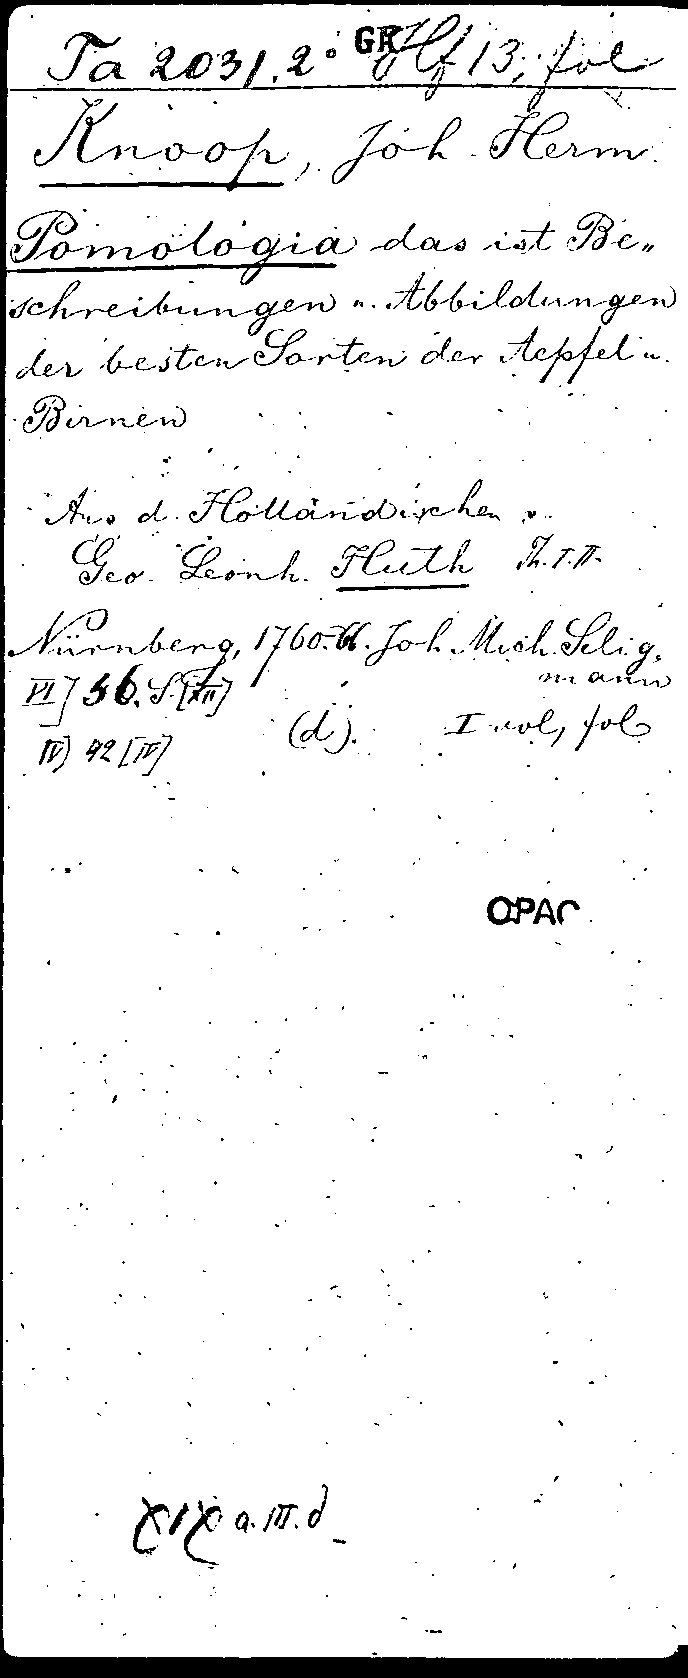 Ta 2031.2° GR Hf 13, fol
Knoop, Joh. Herm.
Pomologia das ist Be„
schreibungen u. Abbildungen
der besten Sorten der Aepfel u.
Birnen
Aus d. Holländischen v.
Geo. Leonh. Huth Th. I. II.
Nürnberg, 1760.66. Joh. Mich. Selig„
mann
VI] 56. S. [XII]
(d). I vol, fol
IV] 42 [IV]
OPAC
XIX a. III. d